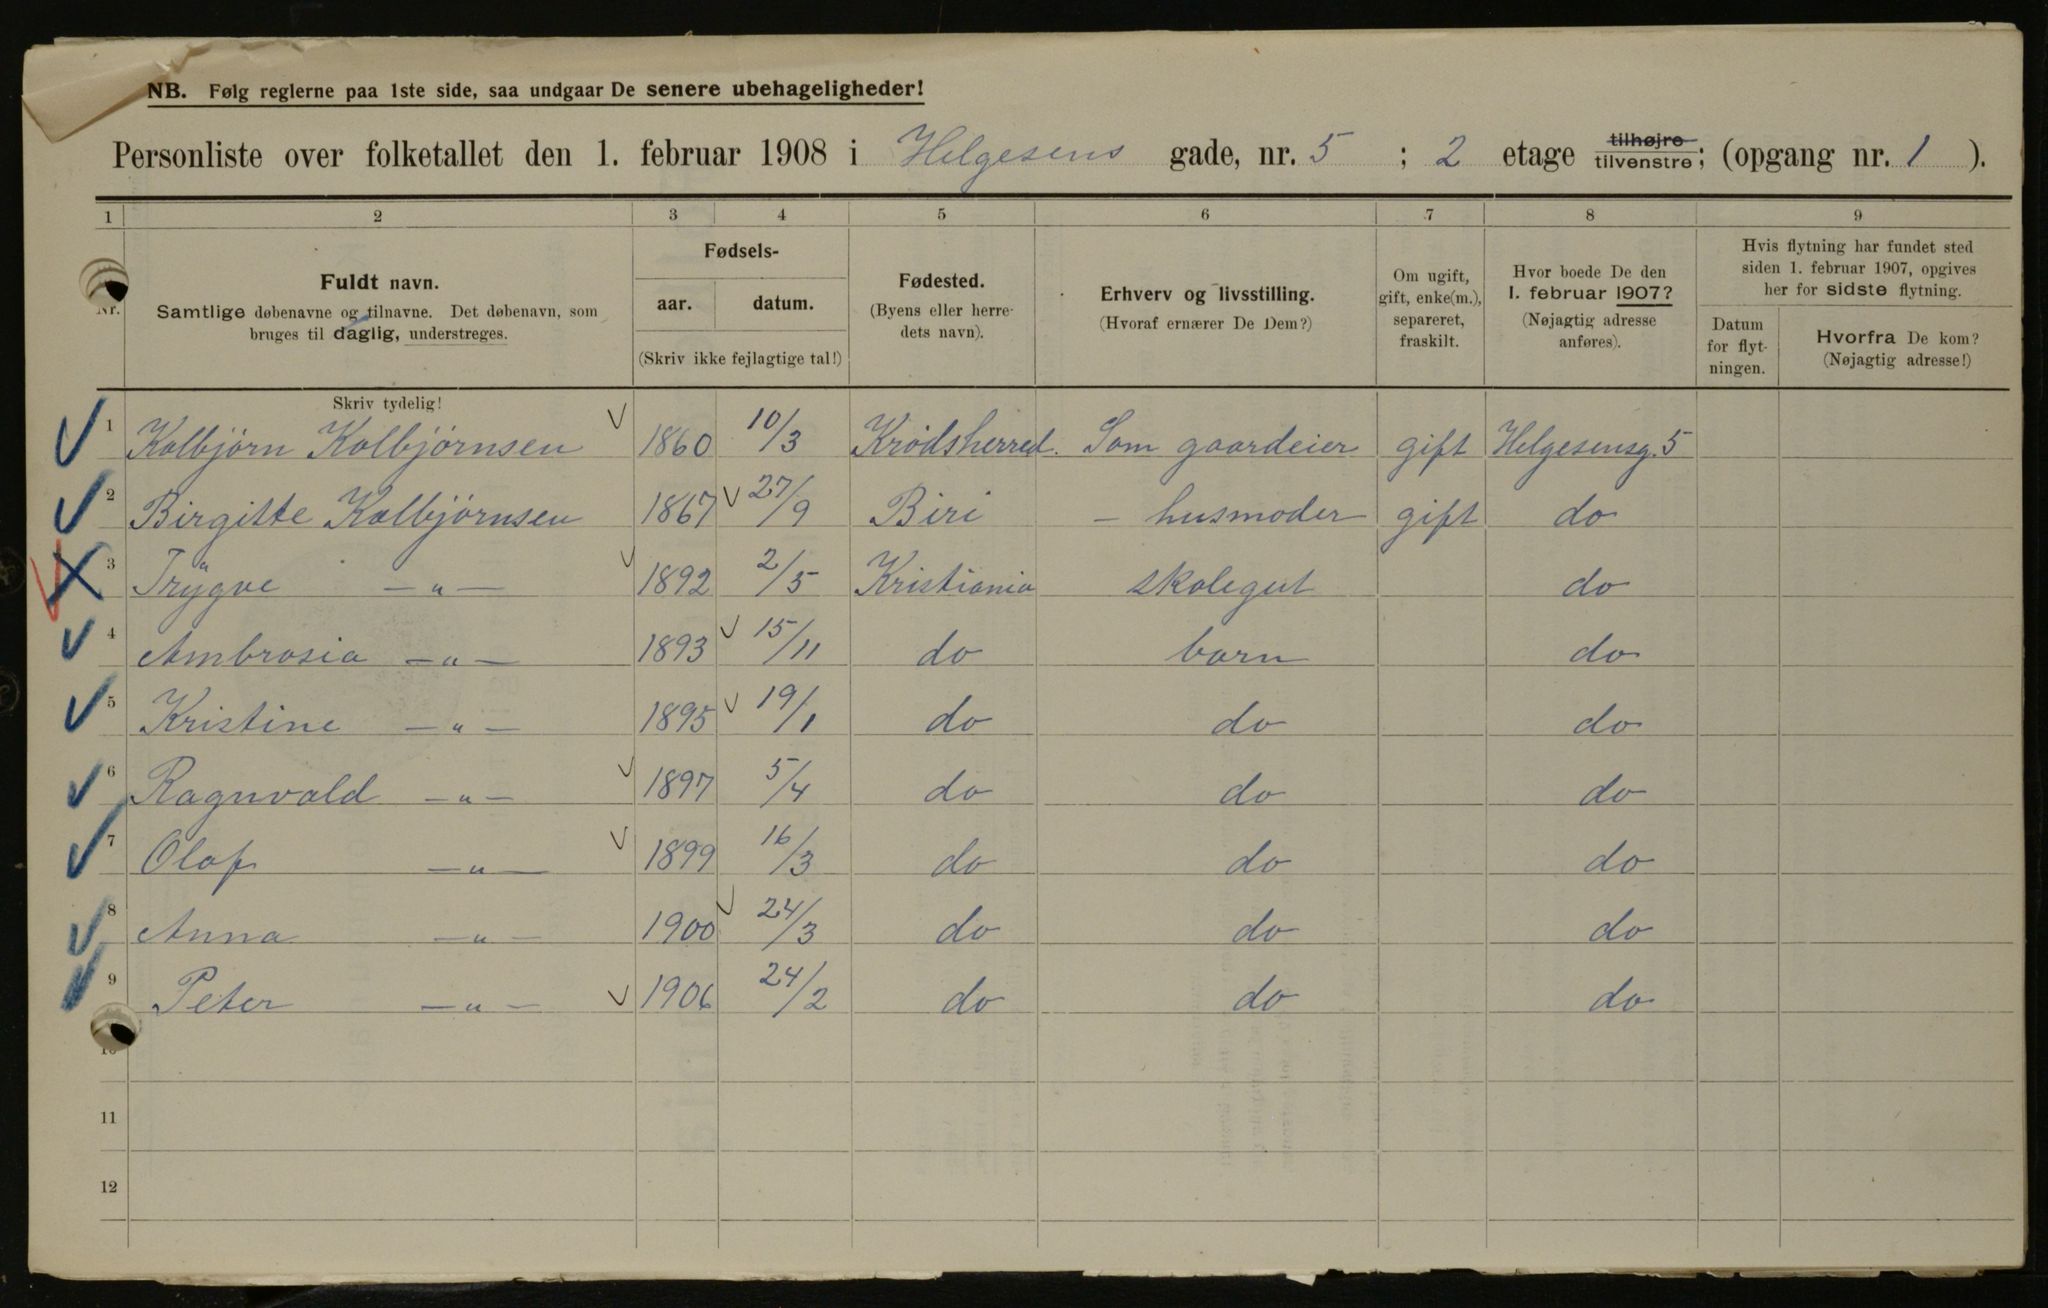 NB. Følg reglerne paa 1ste side, saa undgaar De senere ubehageligheder!
Personliste over folketallet den 1. februar 1908 i Helgesens gade, nr. 5 ; 2 etage tilhøjre tilvenstre; (opgang nr. 1 ).
1 2 3 4 5 6 7 8 9
Nr.
Fuldt navn.
Samtlige døbenavne og tilnavne. Det døbenavn, som
bruges til daglig, understreges.
Fødsels-
aar. datum.
(Skriv ikke fejlagtige tal!)
Fødested.
(Byens eller herre-
dets navn).
Erhverv og livsstilling.
(Hvoraf ernærer De Dem?)
Om ugift,
gift, enke(m.),
separeret,
fraskilt.
Hvor boede De den
1. februar 1907?
(Nøjagtig adresse
anføres).
Hvis flytning har fundet sted
siden 1. februar 1907, opgives
her for sidste flytning.
Datum
for flyt-
ningen.
Hvorfra De kom?
(Nøjagtig adresse!)
Skriv tydelig!
1 Kolbjørn Kolbjørnsen 1860 10/3 Krødsherred. Som gaardeier gift Helgesensg. 5
2 Birgitte Kolbjørnsen 1867 27/9 Biri – husmoder gift do
3 Trygve —„— 1892 2/5 Kristiania skolegut do
4 Ambrosia —„— 1893 15/11 do barn do
5 Kristine —„— 1895 19/1 do do do
6 Ragnvald —„— 1897 5/4 do do do
7 Olaf —„— 1899 16/3 do do do
8 Anna —„— 1900 24/3 do do do
9 Peter —„— 1906 24/2 do do do
10
11
12